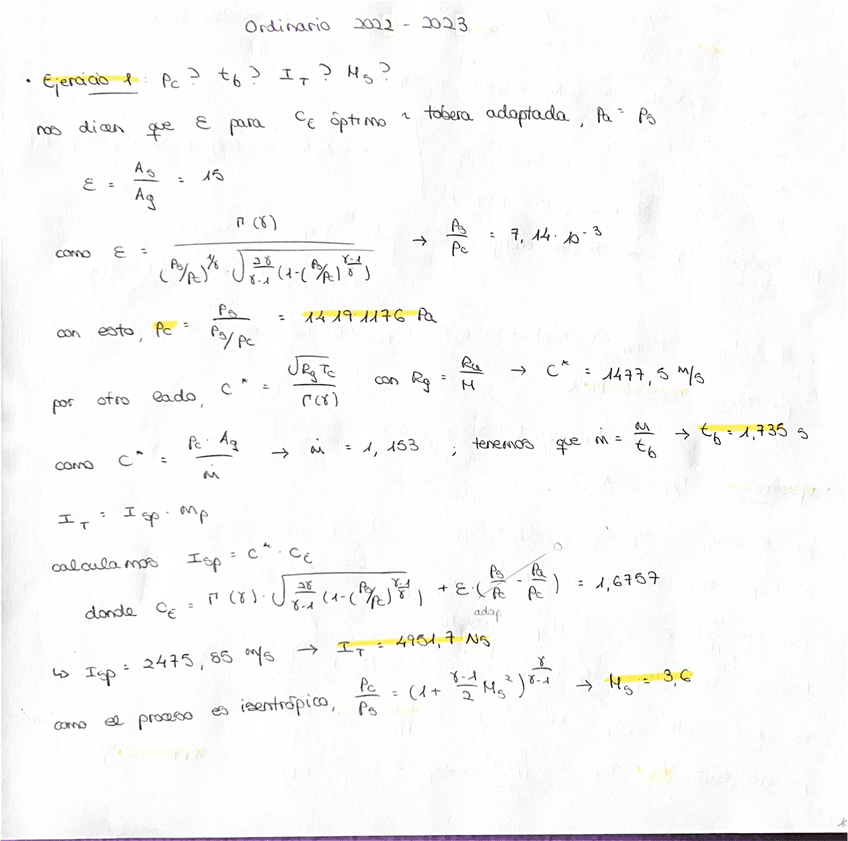 Ordinario 2022 - 2023
• Ejercicio 1: Pc? tb? I_T? Ms?
nos dicen que ε para C_E óptimo ~ tobera adaptada, Pa = Ps
ε = As/Ag = 15
como ε = Γ(γ) / ((Ps/Pc)^(1/γ) · √(2γ/(γ-1) (1-(Ps/Pc)^((γ-1)/γ)))) → Ps/Pc = 7,14·10^-3
con esto, Pc = Ps / (Ps/Pc) = 1419·1176 Pa
por otro lado, C* = √(Rg Tc) / Γ(γ) con Rg = Ru/M → C* = 1477,5 m/s
como C* = Pc · Ag / ṁ → ṁ = 1,153 ; tenemos que ṁ = M/tb → tb = 1,735 s
I_T = Isp · mp
calculamos Isp = C* · C_E
donde C_E = Γ(γ) · √(2γ/(γ-1) (1-(Ps/Pc)^((γ-1)/γ))) + ε·(Ps/Pc - Pa/Pc) = 1,6757
0
adap
↳ Isp = 2475,85 m/s → I_T = 4951,7 Ns
como el proceso es isentrópico, Pc/Ps = (1 + (γ-1)/2 Ms²)^(γ/(γ-1)) → Ms = 3,6